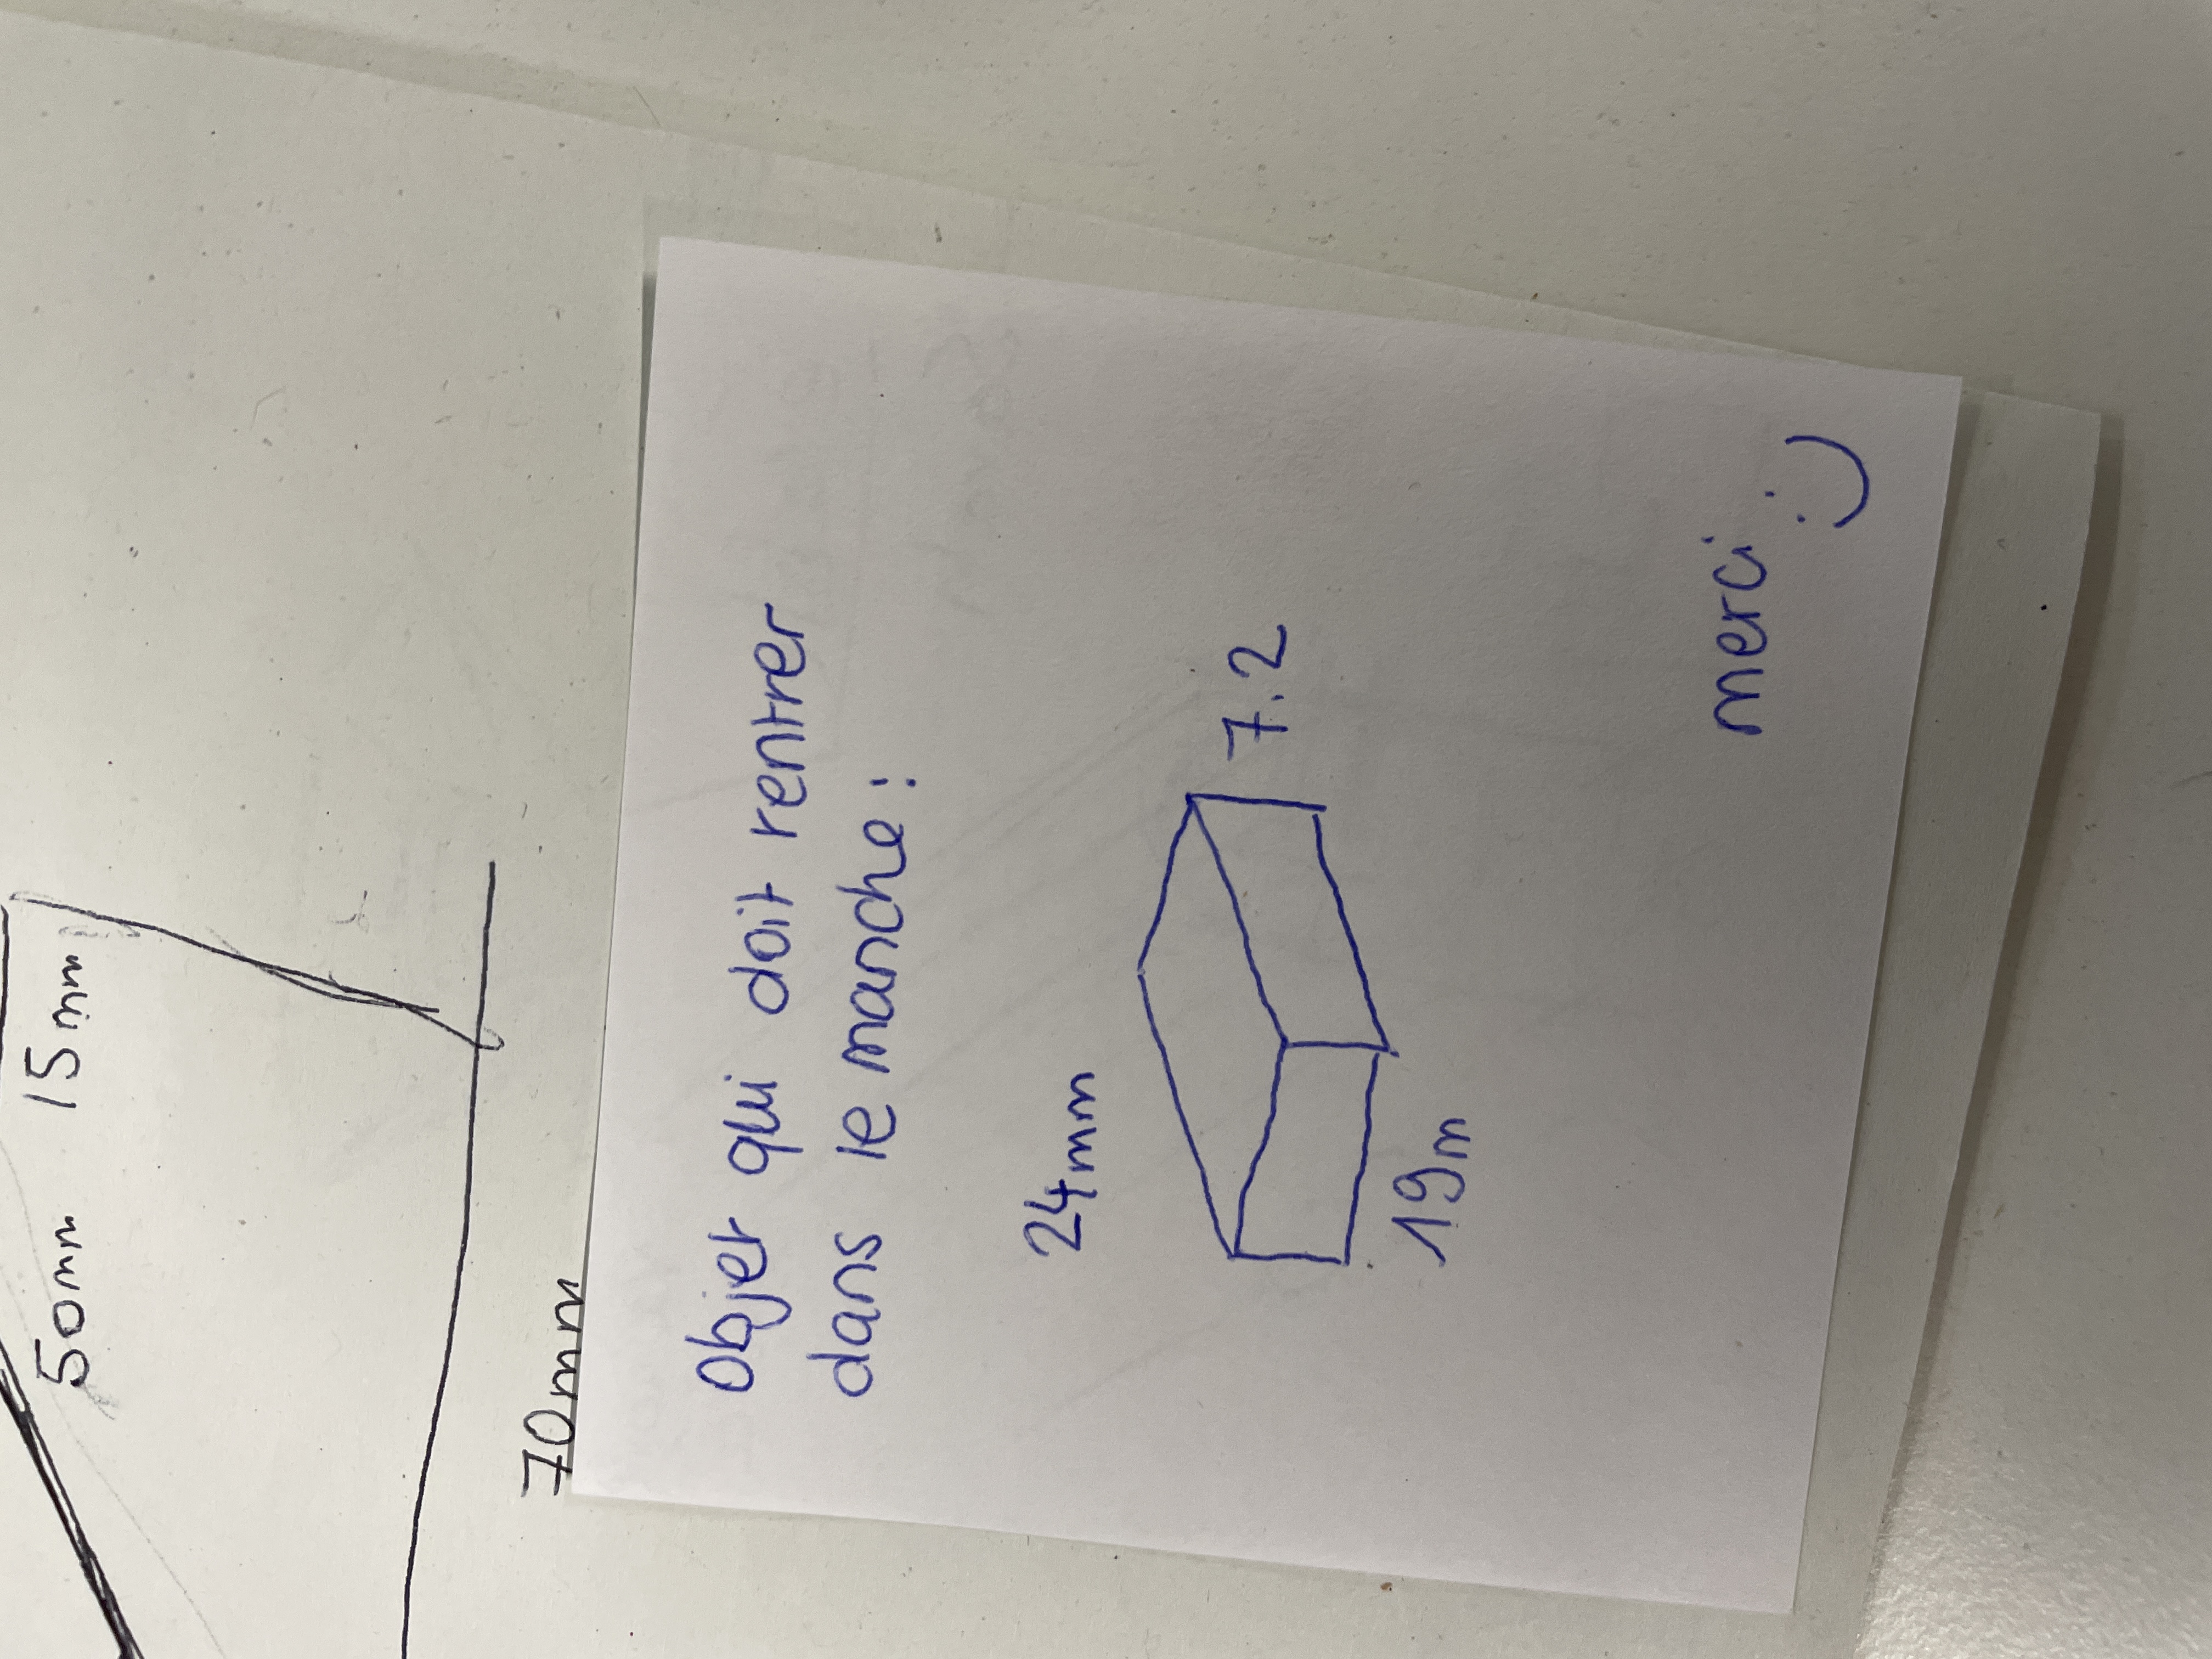 50mm 15mm
70mm
Objet qui doit rentrer
dans le manche :
24mm
7.2
19m
merci :)